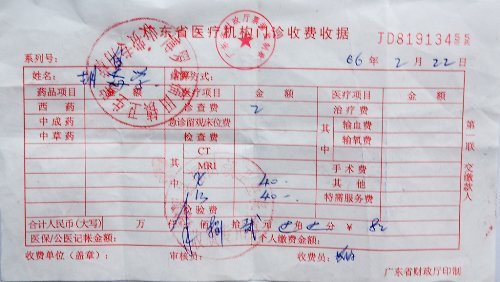 广东省医疗机构门诊收费收据
JD8191345
系列号: 06 年 2 月 22 日
姓名: 结算方式:
药品项目 金额 医疗项目 金额 医疗项目 金额
西药 诊查费 2 治疗费
中成药 急诊留观床位费 其中 输血费
中草药 检查费 输氧费
其中 CT
MRI 手术费
40- 其他
40- 特需服务费
化验费
合计人民币(大写) 万 仟 佰 捌 拾 贰 元 角 分 ¥ 82
医保/公医记帐金额: 个人缴费金额:
收费单位(盖章): 审核员: 收费员:
第一联 交缴款人
广东省财政厅印制